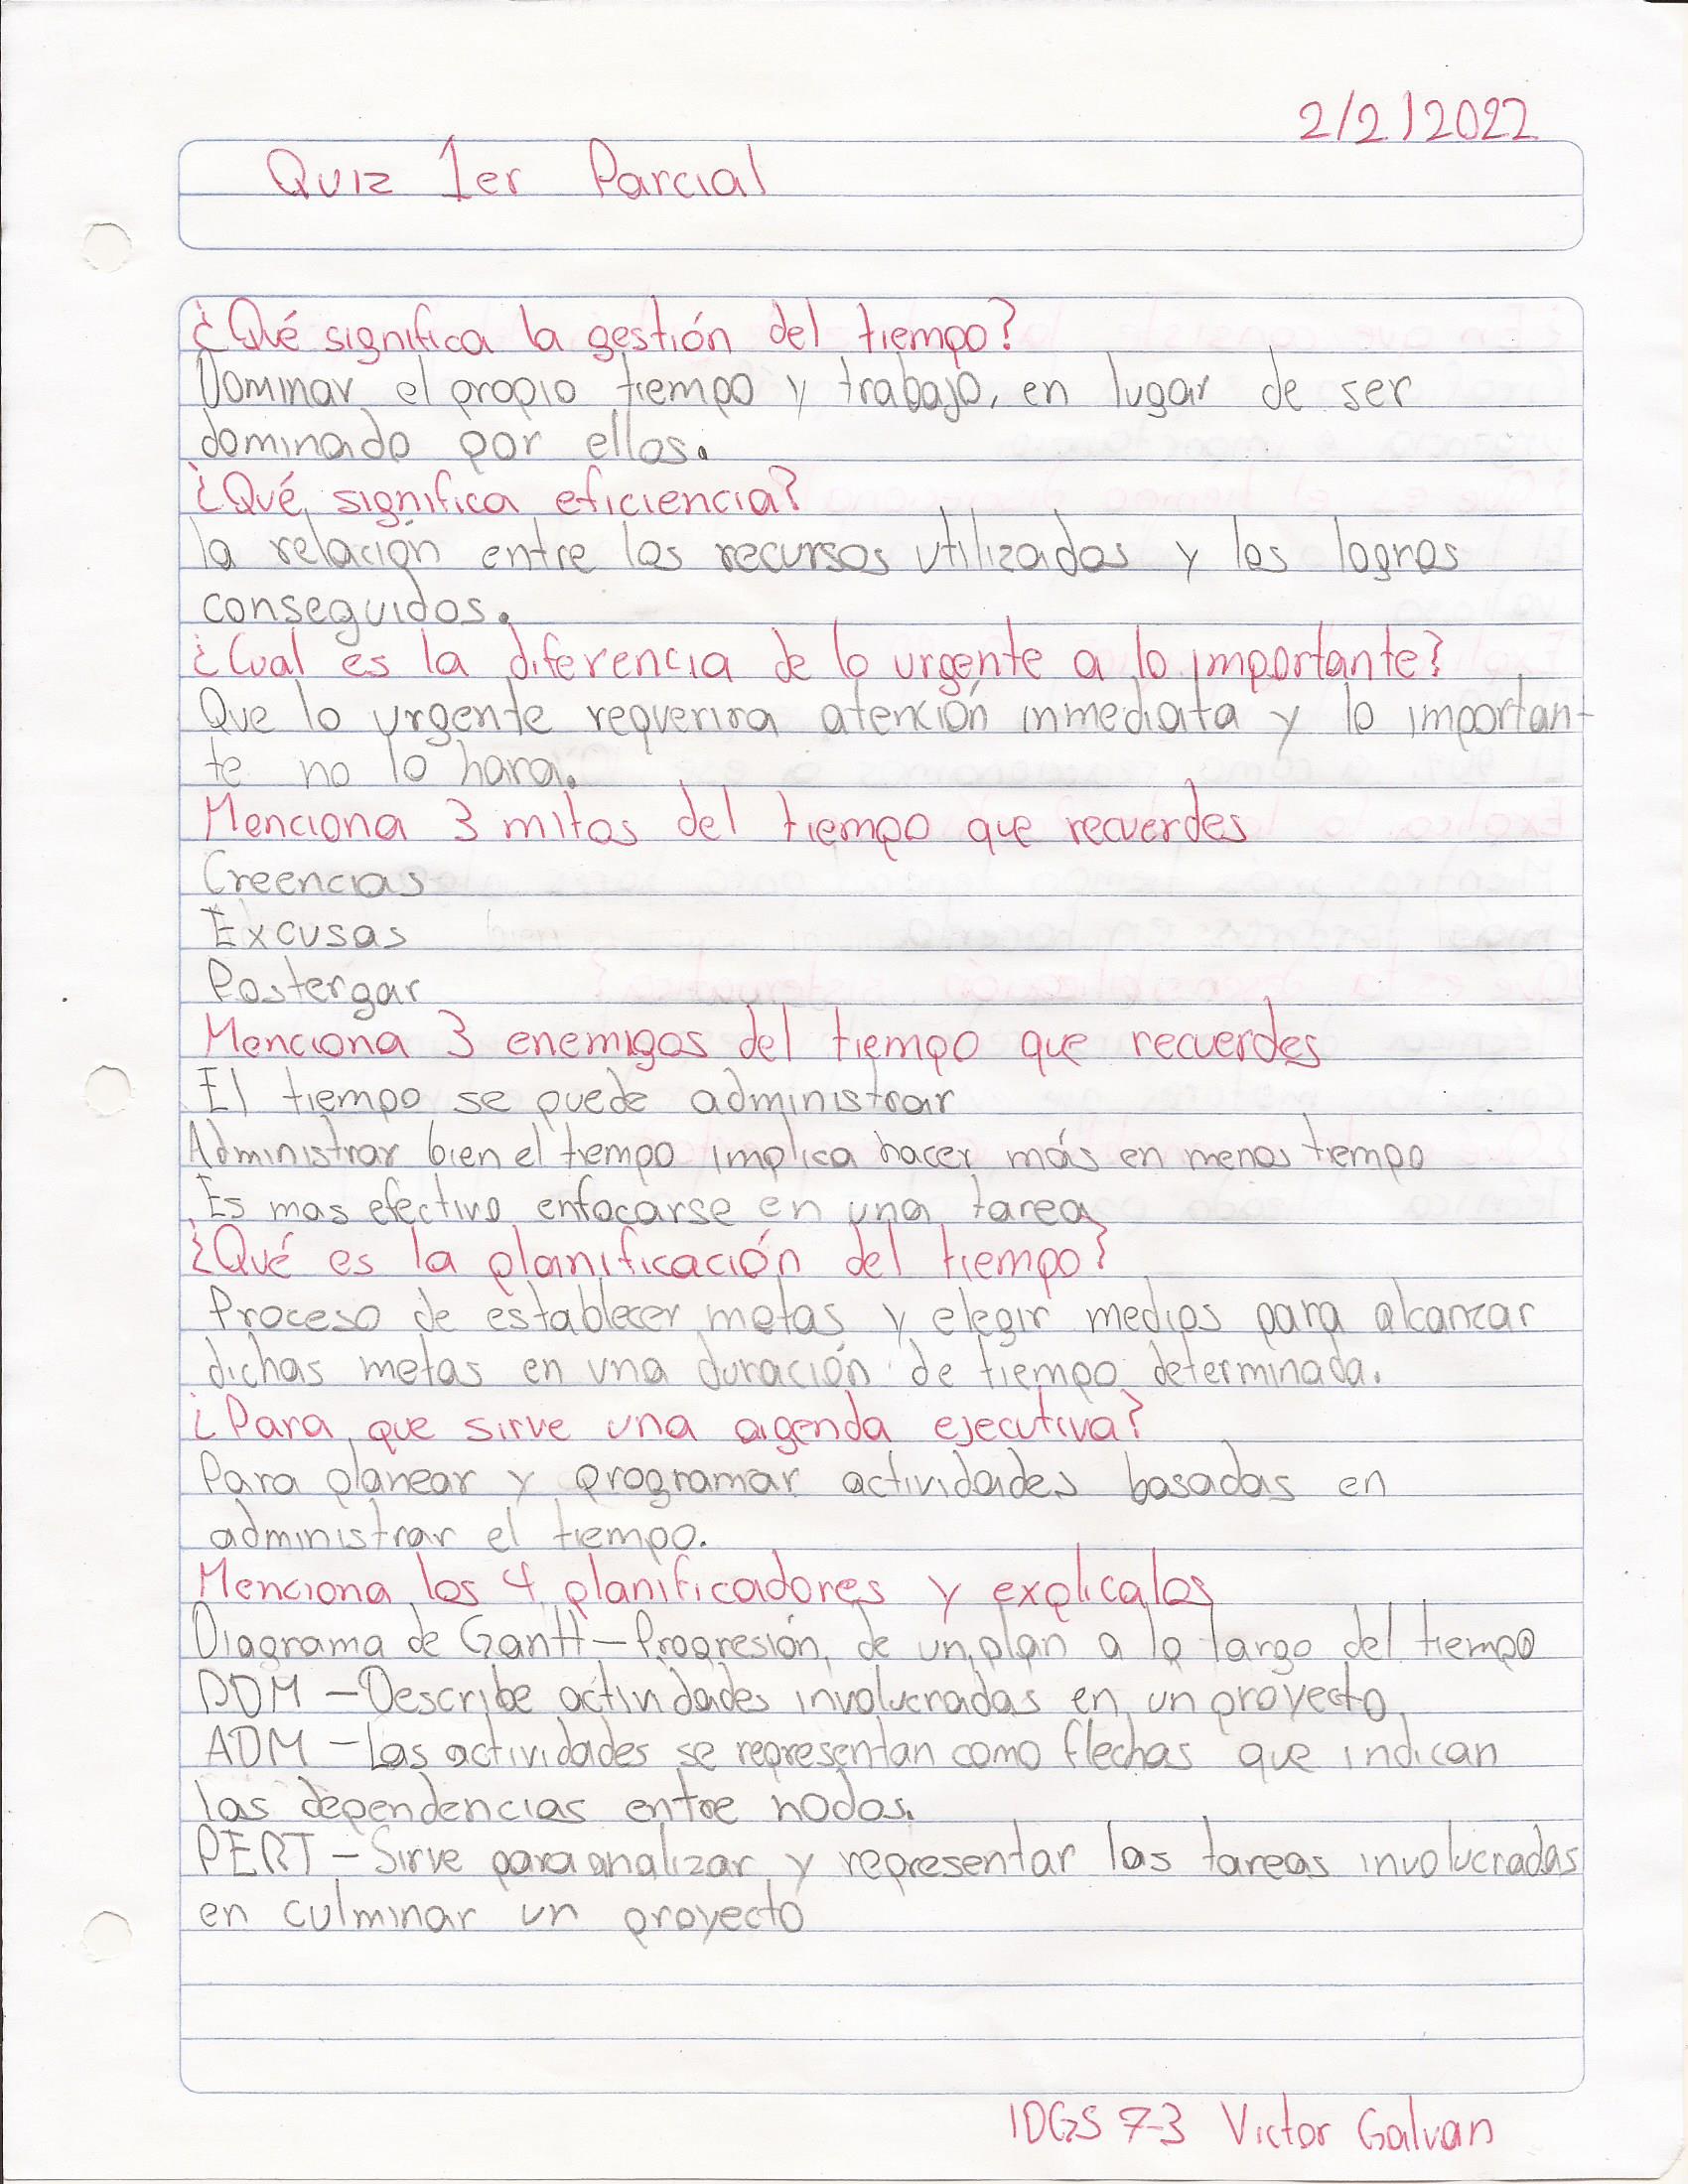 2/2/2022
Quiz 1er Parcial
¿Qué significa la gestión del tiempo?
Dominar el propio tiempo y trabajo, en lugar de ser
dominado por ellos.
¿Qué significa eficiencia?
la relación entre los recursos utilizados y los logros
conseguidos.
¿Cual es la diferencia de lo urgente a lo importante?
Que lo urgente requerira atención inmediata y lo importan-
te no lo hara.
Menciona 3 mitos del tiempo que recuerdes
Creencias
Excusas
Postergar
Menciona 3 enemigos del tiempo que recuerdes
El tiempo se puede administrar
Administrar bien el tiempo implica hacer más en menos tiempo
Es mas efectivo enfocarse en una tarea
¿Qué es la planificación del tiempo?
Proceso de establecer metas y elegir medios para alcanzar
dichas metas en una duración de tiempo determinada.
¿Para que sirve una agenda ejecutiva?
Para planear y programar actividades basadas en
administrar el tiempo.
Menciona los 4 planificadores y explicalos
Diagrama de Gantt - Progresión de un plan a lo largo del tiempo
PDM - Describe actividades involucradas en un proyecto
ADM - Las actividades se representan como flechas que indican
las dependencias entre nodos.
PERT - Sirve para analizar y representar las tareas involucradas
en culminar un proyecto
IDGS 7-3 Victor Galvan